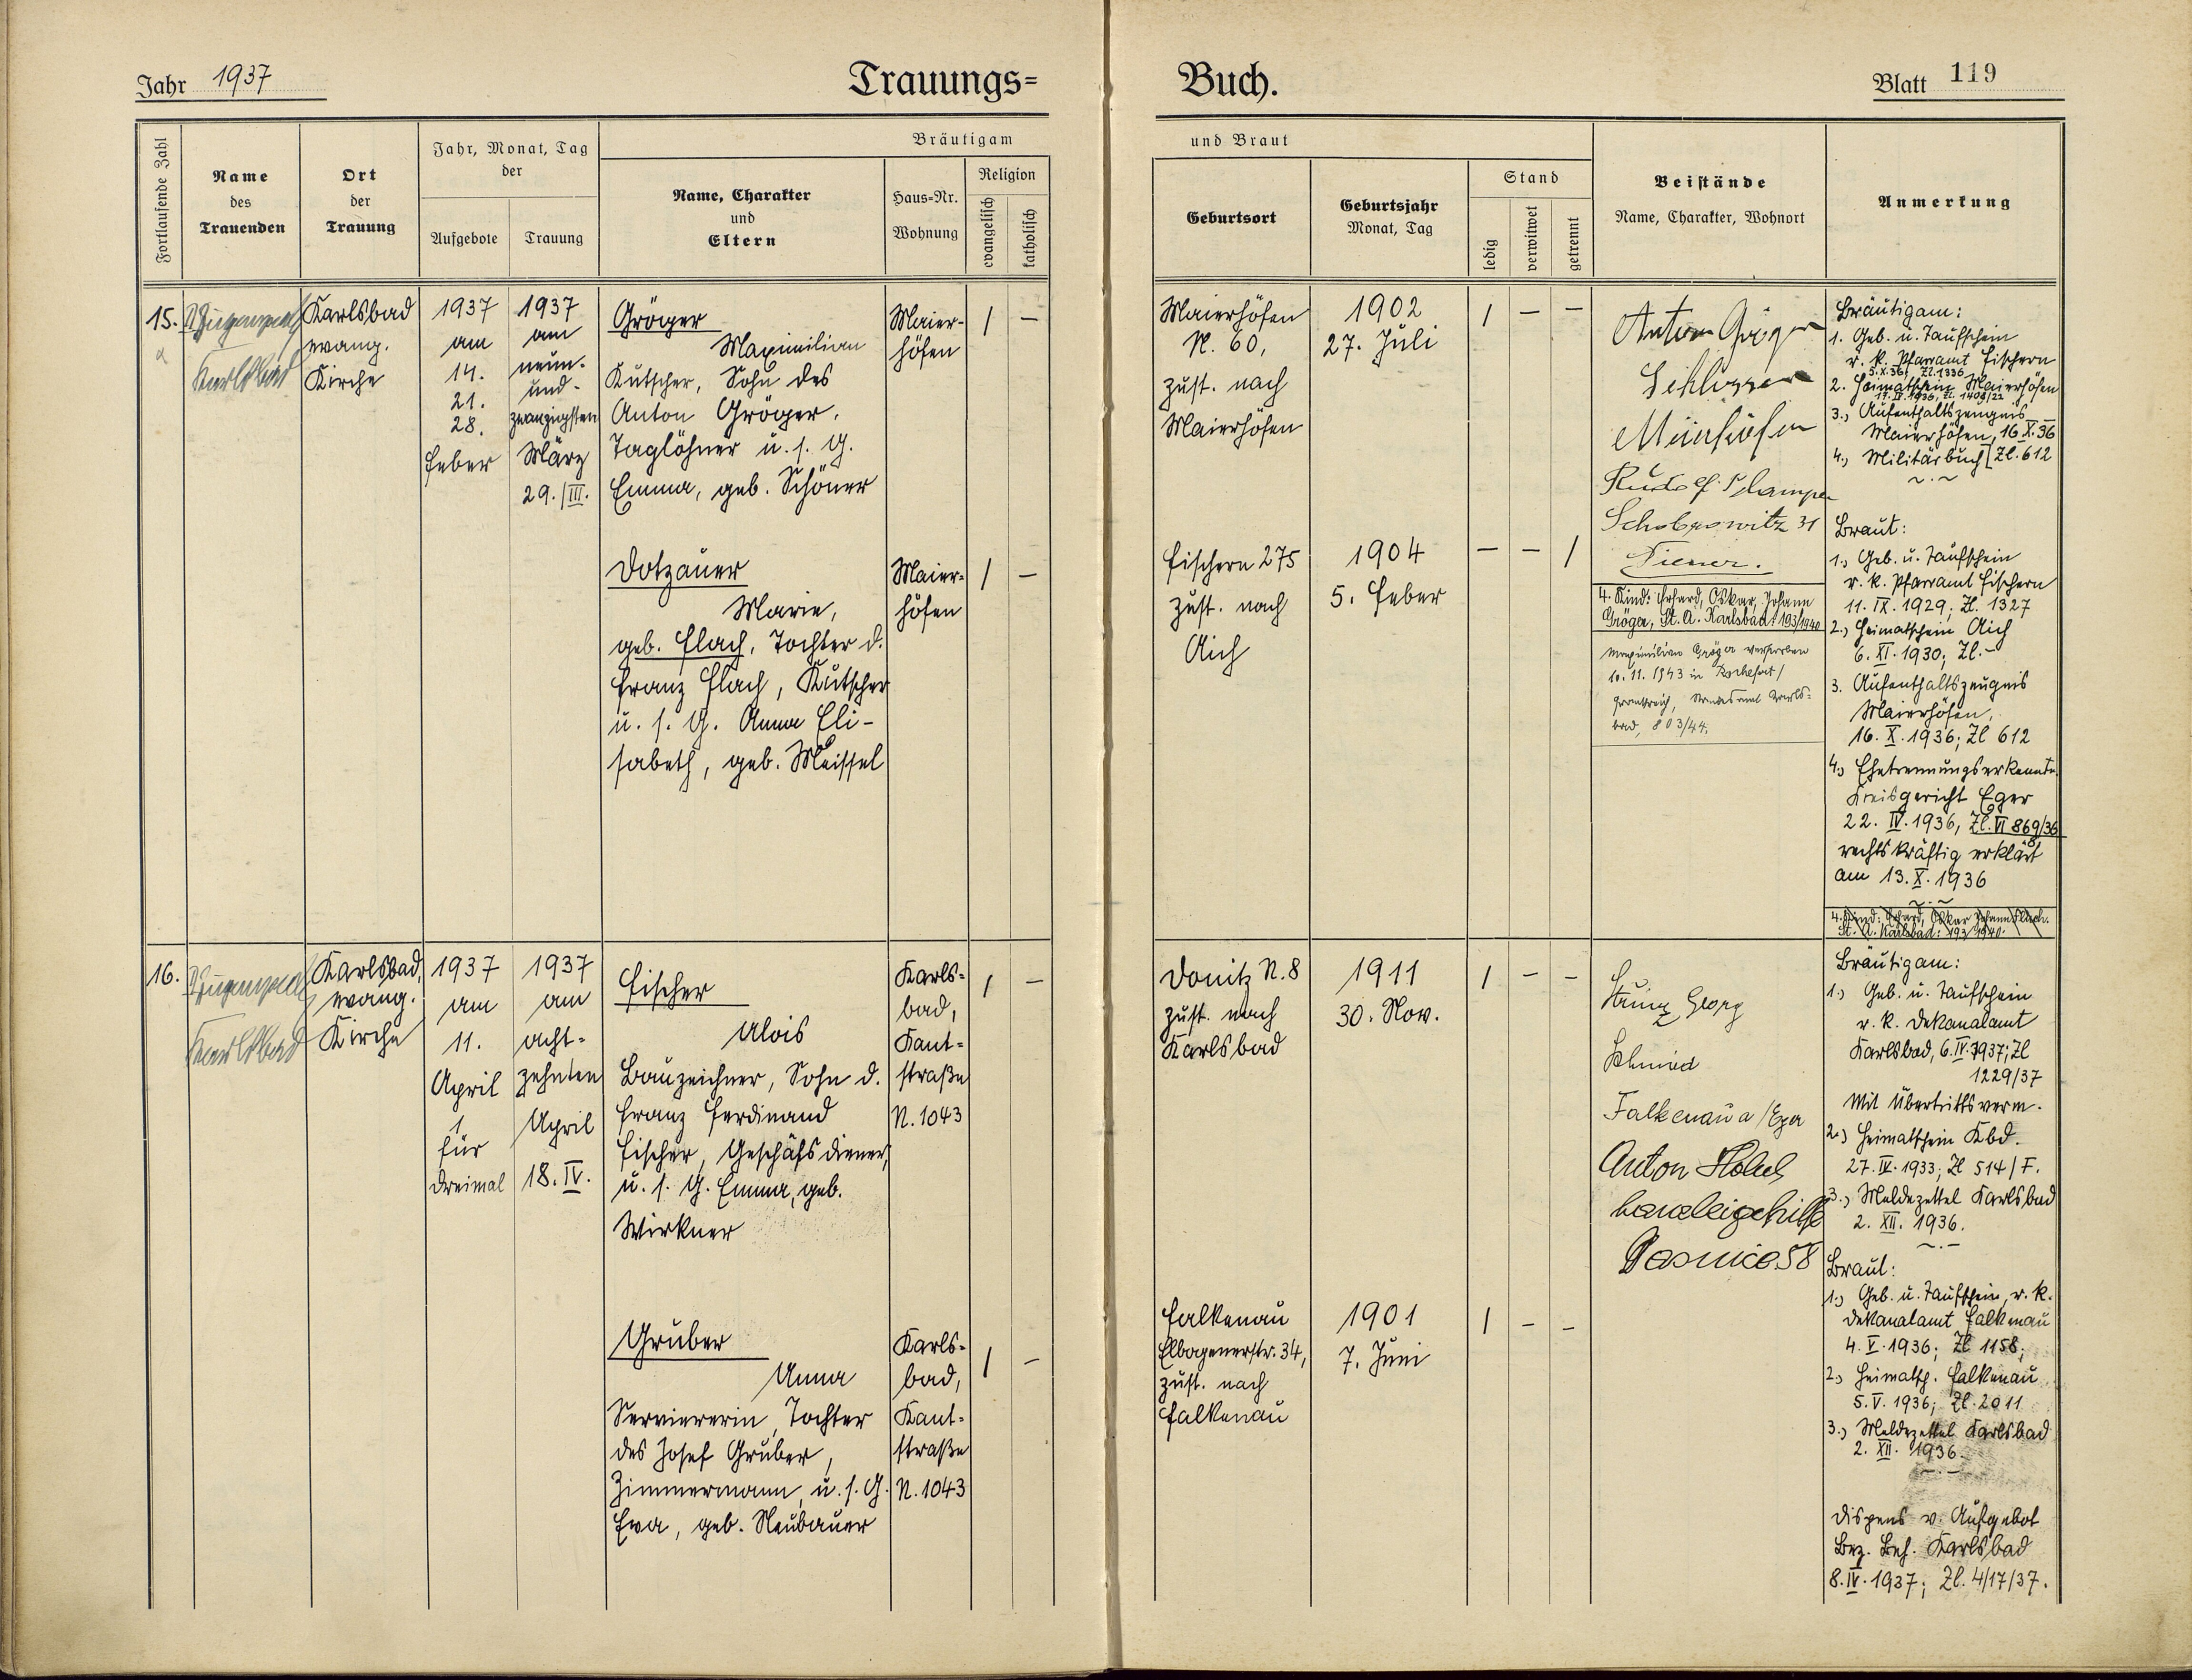 Jahr 1937
Trauungs=
Buch.
Blatt 119
Fortlaufende Zahl
Name
des
Trauenden
Ort
der
Trauung
Jahr, Monat, Tag
der
Aufgebote
Trauung
Bräutigam
Name, Charakter
und
Eltern
Haus=Nr.
Wohnung
Religion
evangelisch
katholisch
und Braut
Geburtsort
Geburtsjahr
Monat, Tag
Stand
ledig
verwitwet
getrennt
Beistände
Name, Charakter, Wohnort
Anmerkung
15.
Karlsbad
Karlsbad
evang.
Kirche
1937
am
14.
21.
28.
Feber
1937
am
neun-
und-
zwanzigsten
März
29./III.
Gröger
Maximilian
Kutscher, Sohn des
Anton Gröger,
Taglöhner u. s. G.
Emma, geb. Schöner
Maier-
höfen
/ –
Maierhöfen
N. 60,
zust. nach
Maierhöfen
1902
27. Juli
/ – –
Anton Gröger
Schlosser
Maierhöfen
Rudolf
31
Diener.
Dotzauer
Marie,
geb. Flach, Tochter d.
Franz Flach, Kutscher
u. s. G. Anna Eli-
sabeth, geb. Meissel
Maier-
höfen
/ –
Fischern 275
zust. nach
Aich
1904
5. Feber
– – /
4. Kind: Erhard, Oskar, Johann
Gröger, St. A. Karlsbad: 193/1940
Maximilian Gröger verstorben
10. 11. 1943 in Rochefort/
Frankreich, Standesamt Karls=
bad, 803/44.
Bräutigam:
1. Geb. u. Taufschein
r. k. Pfarramt Fischern
5. X. 36, Zl. 1336
2. Heimatschein Maierhöfen
3., Aufenthaltszeugnis
Maierhöfen, 16. X. 36
4., Militärbuch [Zl. 612
~.~
Braut:
1., Geb. u. Taufschein
r. k. Pfarramt Fischern
11. IX. 1929; Zl. 1327
2., Heimatschein Aich
6. XI. 1930; Zl. –
3. Aufenthaltszeugnis
Maierhöfen,
16. X. 1936; Zl 612
4., Ehetrennungserkenntn.
Kreisgericht Eger
22. IV. 1936, Zl. VI 869/36
rechtskräftig erklärt
am 13. X. 1936
~.~
4. Kind: Erhard, Oskar Johann Flach.
St. A. Karlsbad: 193/1940.
16.
Karlsbad
Karlsbad,
evang.
Kirche
1937
am
11.
April
1
für
dreimal
1937
am
acht-
zehnten
April
18. IV.
Fischer
Alois
Bauzeichner, Sohn d.
Franz Ferdinand
Fischer, Geschäfsdiener,
u. s. G. Emma, geb.
Wirkner
Karls-
bad,
Kant-
straße
N. 1043
/ –
Donitz N. 8
zust. nach
Karlsbad
1911
30. Nov.
/ – –
Georg
Schmied
Falkenau a/Eger
Anton
58
Gruber
Anna
Serviererin, Tochter
des Josef Gruber,
Zimmermann, u. s. G.
Eva, geb. Neubauer
Karls-
bad,
Kant-
straße
N. 1043
/ –
Falkenau
Elbogenerstr. 34,
zust. nach
Falkenau
1901
7. Juni
/ – –
Bräutigam:
1., Geb. u. Taufschein
r. k. Dekanalamt
Karlsbad, 6. IV. 1937; Zl
1229/37
Mit Übertrittsverm.
2., Heimatschein Kbd.
27. IV. 1933; Zl 514/F.
3., Meldezettel Karlsbad
2. XII. 1936.
~.~
Braut:
1., Geb. u. Taufschein, r. k.
Dekanalamt Falkenau
4. V. 1936; Zl 1158;
2., Heimatsch. Falkenau
5. V. 1936; Zl. 2011
3., Meldezettel Karlsbad
2. XII. 1936.
~.~
Dispens v. Aufgebot
Bez. Beh. Karlsbad
8. IV. 1937; Zl. 4/17/37.